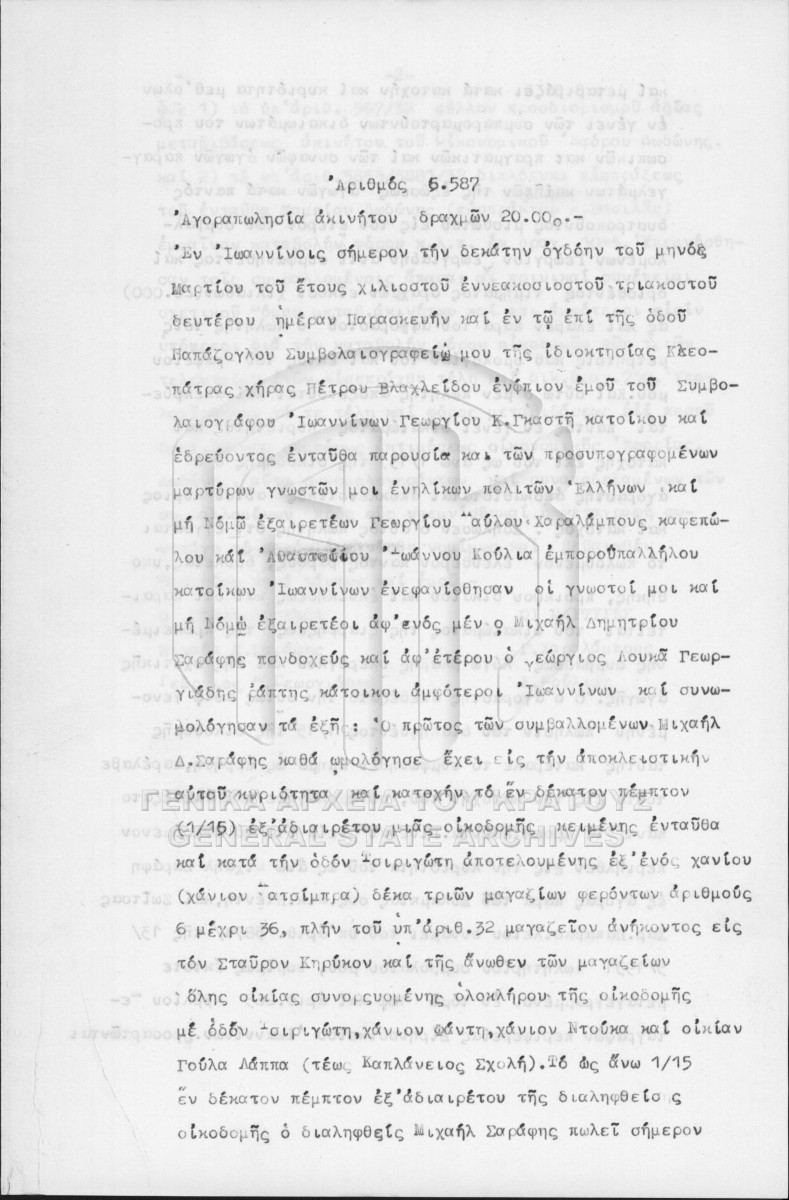 Ἀριθμός 6.587
Ἀγοραπωλησία ἀκινήτου δραχμῶν 20.000.-
Ἐν Ἰωαννίνοις σήμερον τήν δεκάτην ὀγδόην τοῦ μηνός
Μαρτίου τοῦ ἔτους χιλιοστοῦ ἐννεακοσιοστοῦ τριακοστοῦ
δευτέρου ἡμέραν Παρασκευήν καί ἐν τῷ ἐπί τῆς ὁδοῦ
Παπάζογλου Συμβολαιογραφείῳ μου τῆς ἰδιοκτησίας Κλεο-
πάτρας χήρας Πέτρου Βλαχλείδου ἐνώπιον ἐμοῦ τοῦ Συμβο-
λαιογράφου Ἰωαννίνων Γεωργίου Κ.Γκαστῆ κατοίκου καί
ἑδρεύοντος ἐνταῦθα παρουσία και τῶν προσυπογραφομένων
μαρτύρων γνωστῶν μοι ἐνηλίκων πολιτῶν Ἑλλήνων καί
μή Νόμῳ ἐξαιρετέων Γεωργίου Παύλου Χαραλάμπους καφεπώ-
λου καί Ἀναστασίου Ἰωάννου Κούλια ἐμποροϋπαλλήλου
κατοίκων Ἰωαννίνων ἐνεφανίσθησαν οἱ γνωστοί μοι καί
μή Νόμῳ ἐξαιρετέοι ἀφ'ενός μέν ὁ Μιχαήλ Δημητρίου
Σαράφης πανδοχεύς καί ἀφ'ἑτέρου ὁ Γεώργιος Λουκᾶ Γεωρ-
γιάδης ράπτης κάτοικοι ἀμφότεροι Ἰωαννίνων καί συνω-
μολόγησαν τά ἑξῆς: Ὁ πρῶτος τῶν συμβαλλομένων Μιχαήλ
Δ.Σαράφης καθά ὡμολόγησε ἔχει εἰς τήν ἀποκλειστικήν
αὐτοῦ κυριότητα καί κατοχήν τό ἕν δέκατον πέμπτον
(1/15) ἐξ'ἀδιαιρέτου μιᾶς οἰκοδομῆς κειμένης ἐνταῦθα
καί κατά τήν ὁδόν Τσιριγώτη ἀποτελουμένης ἐξ'ἑνός χανίου
(χάνιον Πατσίμπρα) δέκα τριῶν μαγαζίων φερόντων ἀριθμούς
6 μέχρι 36, πλήν τοῦ ὑπ'ἀριθ.32 μαγαζεῖον ἀνήκοντος εἰς
τόν Σταῦρον Κηρύκον καί τῆς ἄνωθεν τῶν μαγαζείων
ὅλης οἰκίας συνορευομένης ὁλοκλήρου τῆς οἰκοδομῆς
μέ ὁδόν Τσιριγώτη,χάνιον Φάντη,χάνιον Ντούκα καί οἰκίαν
Γούλα Λάππα (τέως Καπλάνειος Σχολή).Τό ὡς ἄνω 1/15
ἕν δέκατον πέμπτον ἐξ'ἀδιαιρέτου τῆς διαληφθείσ ς
οἰκοδομῆς ὁ διαληφθείς Μιχαήλ Σαράφης πωλεῖ σήμερον
ΓΕΝΙΚΑ ΑΡΧΕΙΑ ΤΟΥ ΚΡΑΤΟΥΣ
GENERAL STATE ARCHIVES